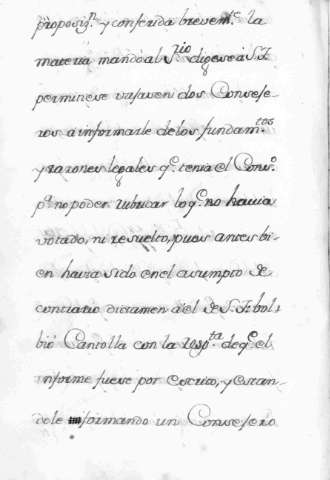 proposiz.n y conferida brevem.te la
materia mandó al S.rio digese á S.E
permitiese vajasen dos Conseje-
ros à informarle delos fundam.tos
y razones legales q.e tenia el Cons.o
p.a no poder rubricar lo q.e no havia
votado, ni resuelto, pues antes bi-
en havia sido en el asumpto de
contrario dictamen à el de S.E. bol-
bió Cantolla con la resp.ta de q.e el
informe fuese por escrito, y estan-
dole formando un Consejero